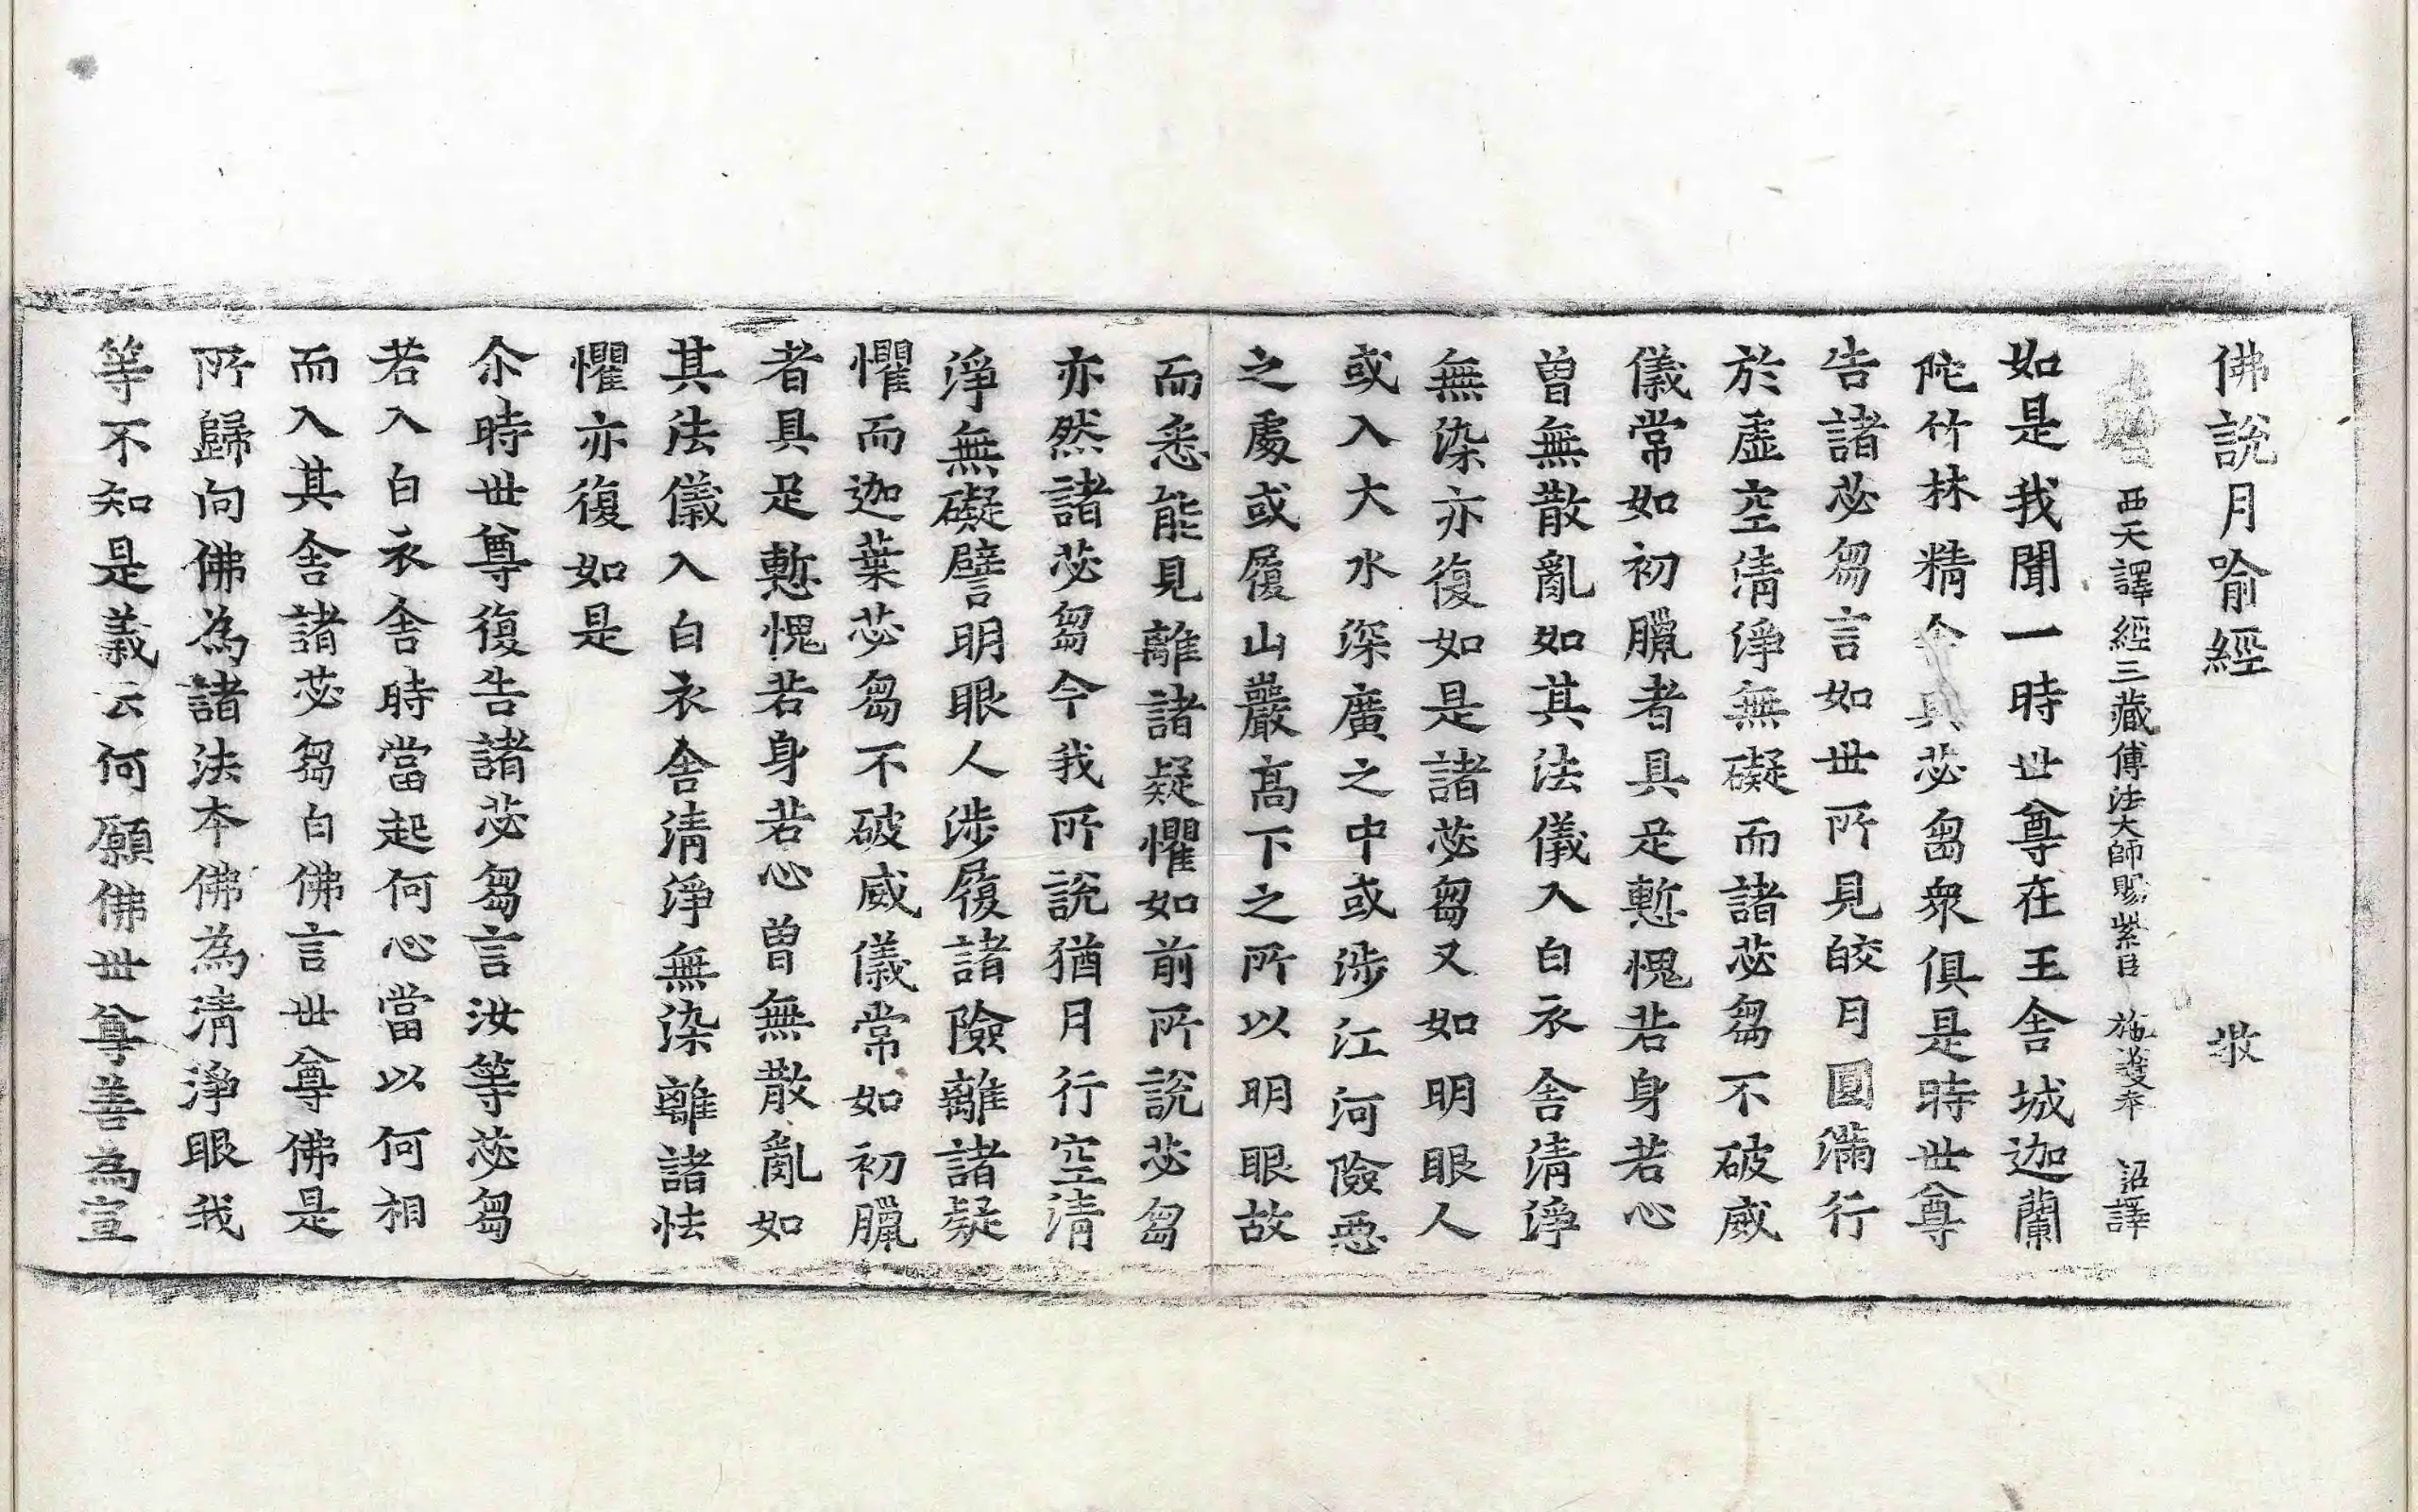 佛說月喻經 㪅
西天譯經三藏傳法大師賜紫臣 施護奉 詔譯
如是我聞一時世尊在王舍城迦蘭
陀竹林精舍與苾芻衆俱是時世尊
告諸苾芻言如世所見皎月圓滿行
於虛空清淨無礙而諸苾芻不破威
儀常如初臘者具足慙愧若身若心
曾無散亂如其法儀入白衣舍清淨
無染亦復如是諸苾芻又如明眼人
或入大水深廣之中或涉江河險惡
之處或履山巖高下之所以明眼故
而悉能見離諸疑懼如前所說苾芻
亦然諸苾芻今我所說猶月行空清
淨無礙譬明眼人涉履諸險離諸疑
懼而迦葉苾芻不破威儀常如初臘
者具足慙愧若身若心曾無散亂如
其法儀入白衣舍清淨無染離諸怯
懼亦復如是
尒時世尊復告諸苾芻言汝等苾芻
若入白衣舍時當起何心當以何相
而入其舍諸苾芻白佛言世尊佛是
所歸向佛為諸法本佛為清淨眼我
等不知是義云何願佛世尊善為宣